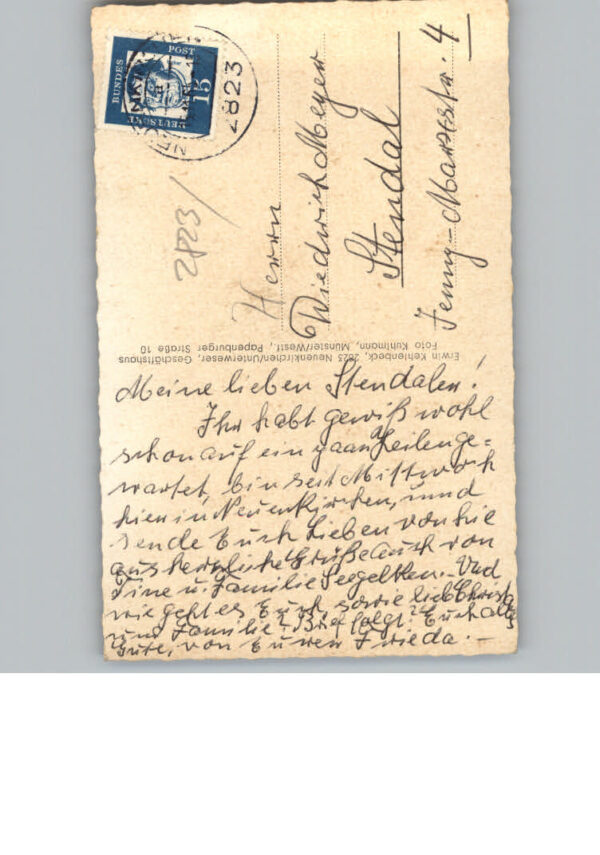 DEUTSCHE
BUNDES
POST
15
2823
2823/
Herrn
Diedrich Meyer
Stendal
Jenny-Marxstr. 4
Erwin Kehlenbeck, 2823 Neuenkirchen/Unterweser, Geschäftshaus
Foto Kuhlmann, Münster/Westf., Papenburger Straße 10
Meine lieben Stendaler!
Ihr habt gewiß wohl
schon auf ein paar Zeilen ge-
wartet, bin seit Mittwoch
hier in Neuenkirchen, und
sende Euch Lieben von hie
aus herzliche Grüße auch von
Tine u. Familie Seegelken. Und
wie geht es Euch, sowie lieb Christa
und Familie? Brief folgt! Euch alles
Gute, von Euren Frieda.-